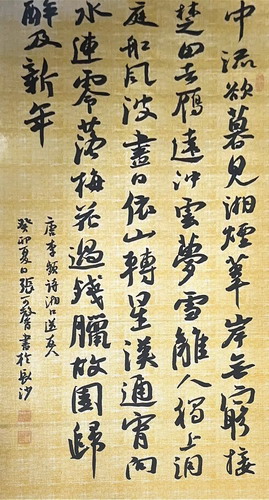 中流欲暮見湘煙葦岸无窮接
楚田去雁遠冲雲夢雪離人獨上洞
庭船風波盡日依山轉星漢通宵向
水連零落梅花過殘臘故園歸
醉及新年
唐李頻詩湘口送友人
癸卯夏日張書於長沙